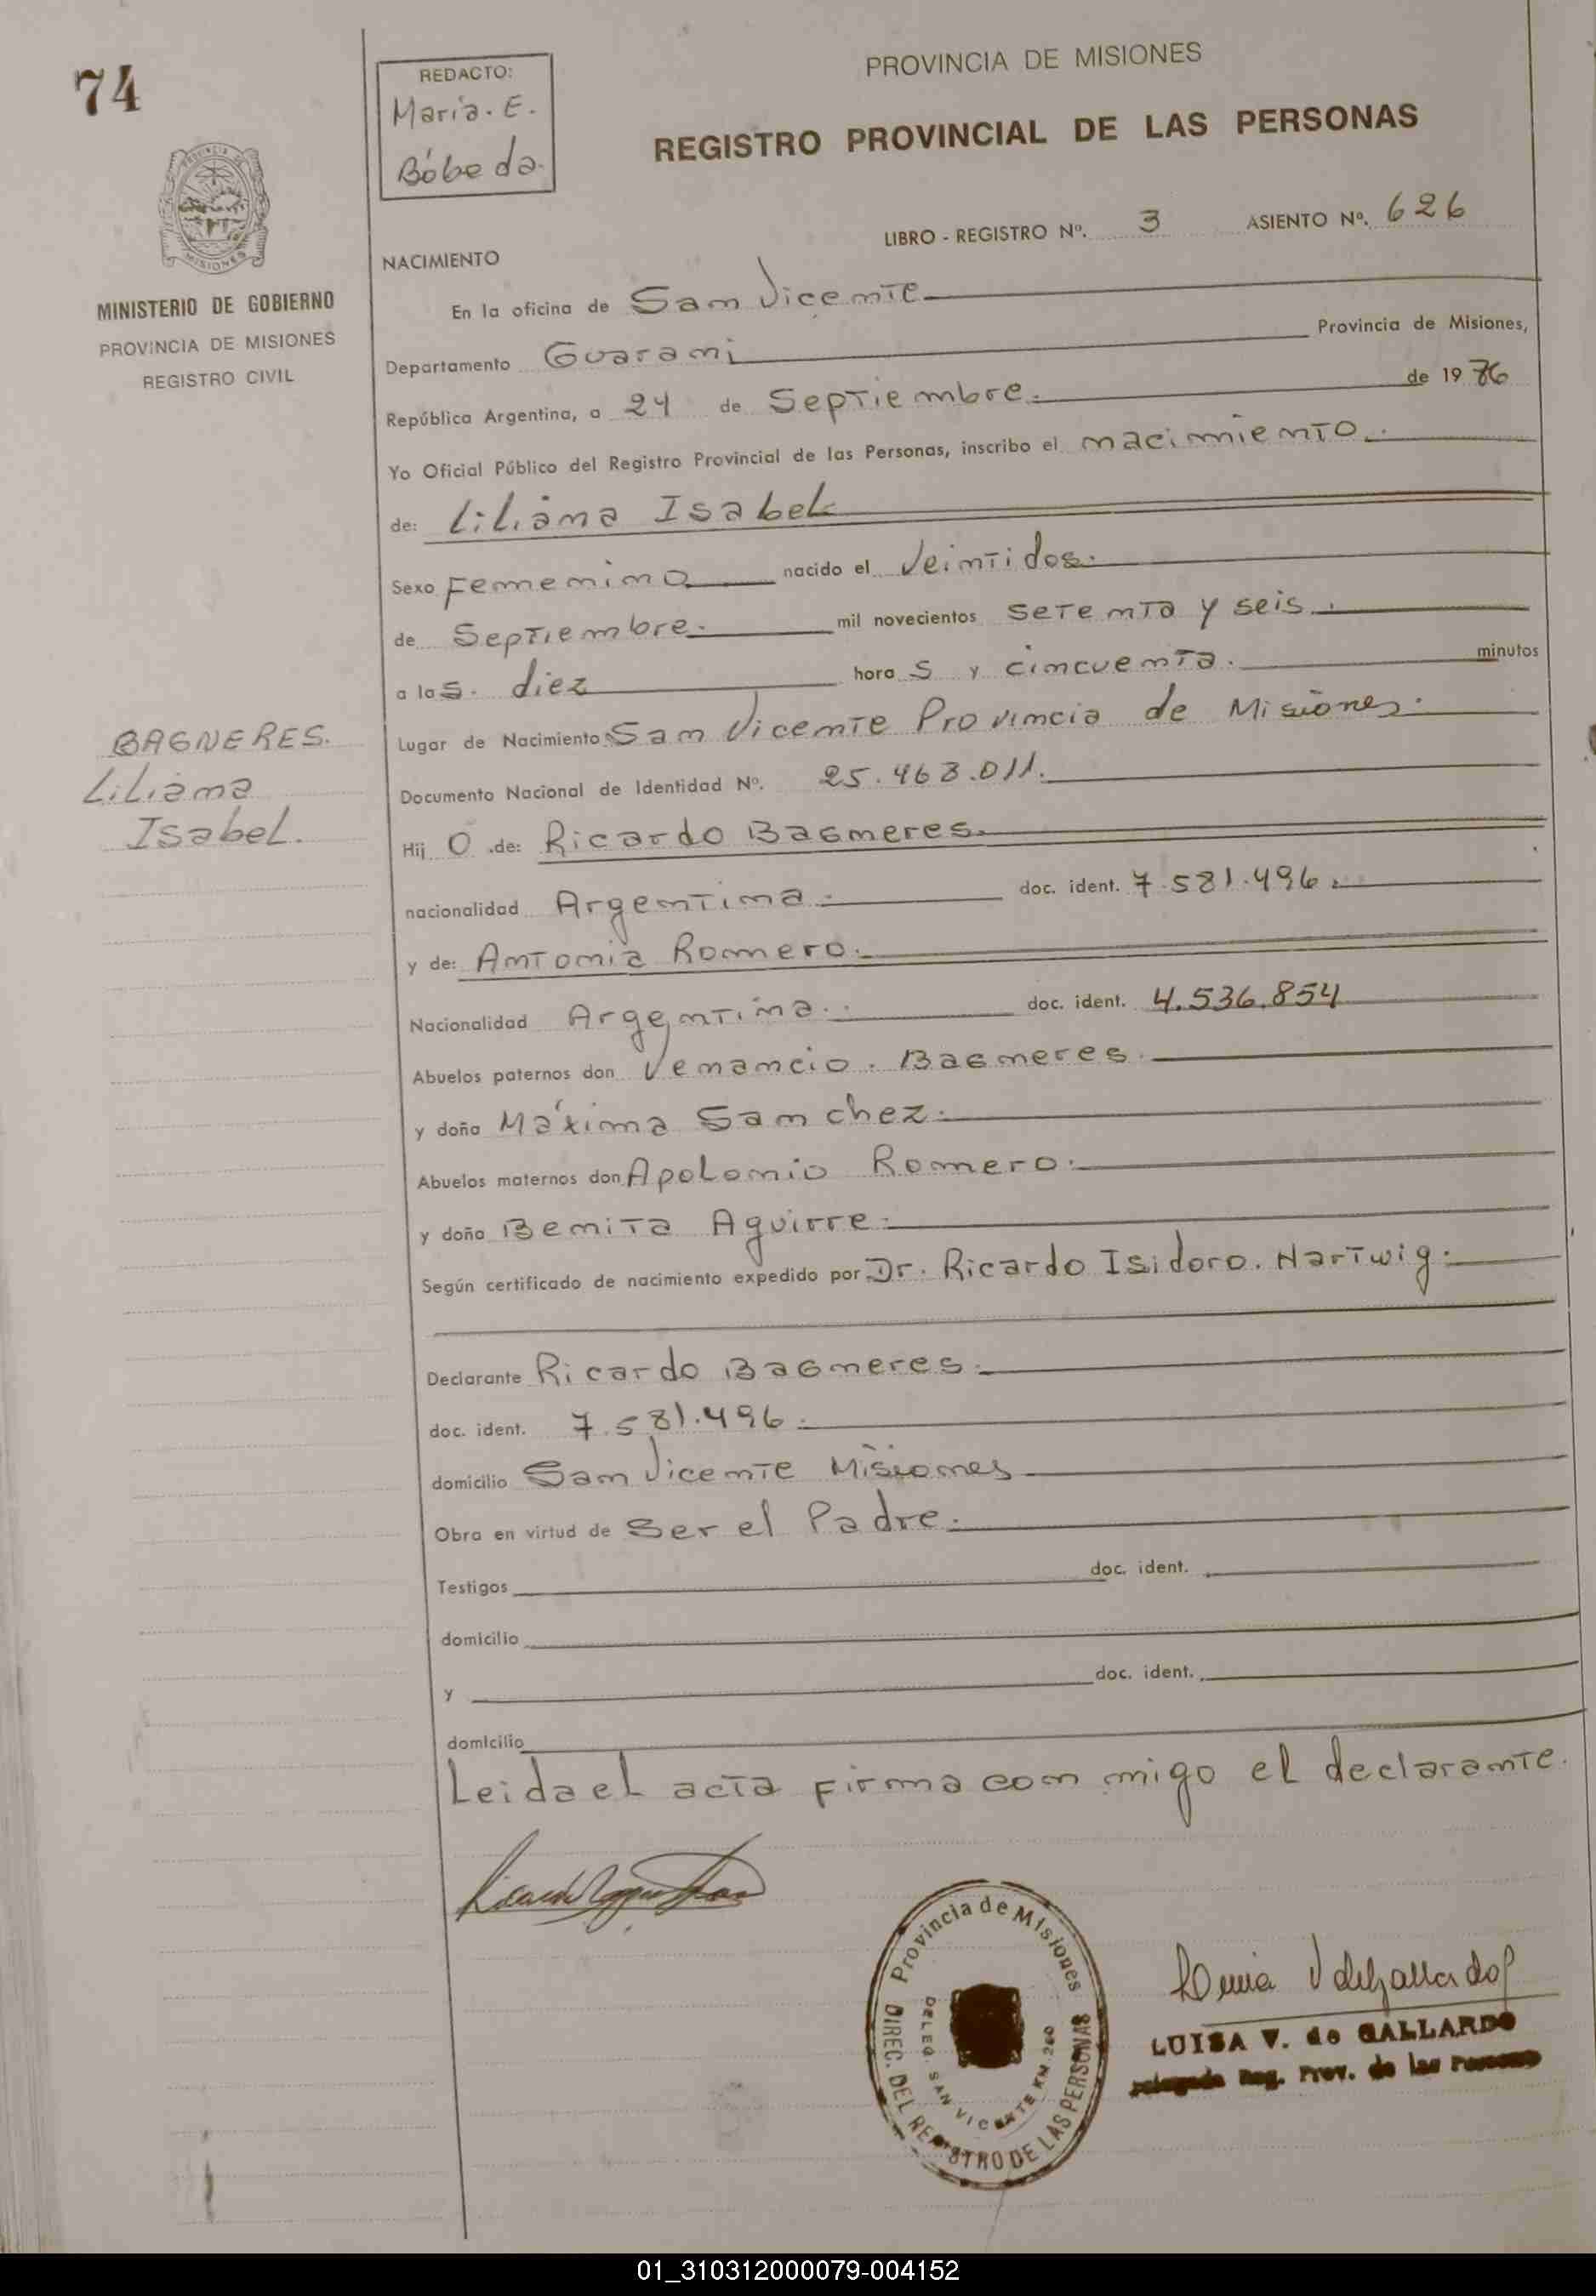 74
REDACTO:
Maria. E.
Bóbeda.
PROVINCIA DE MISIONES
REGISTRO PROVINCIAL DE LAS PERSONAS
LIBRO - REGISTRO Nº. 3 ASIENTO Nº. 626
PROVINCIA DE
MISIONES
MINISTERIO DE GOBIERNO
PROVINCIA DE MISIONES
REGISTRO CIVIL
NACIMIENTO
En la oficina de San Vicente
Departamento Guarani Provincia de Misiones,
República Argentina, a 24 de Septiembre. de 1976
Yo Oficial Público del Registro Provincial de las Personas, inscribo el nacimiento.
de: Liliana Isabel
Sexo Femenino nacido el Veintidos.
de Septiembre. mil novecientos setenta y seis.
a las. diez horas y cincuenta. minutos
Lugar de Nacimiento San Vicente Provincia de Misiones.
BAGNERES.
Liliana
Isabel.
Documento Nacional de Identidad Nº. 25.463.011.
Hij O .de: Ricardo Bagneres.
nacionalidad Argentina. doc. ident. 7.581.496.
y de: Antonia Romero.
Nacionalidad Argentina. doc. ident. 4.536.854
Abuelos paternos don Venancio. Bagneres.
y doña Máxima Sanchez.
Abuelos maternos don Apolonio Romero.
y doña Benita Aguirre.
Según certificado de nacimiento expedido por Dr. Ricardo Isidoro. Hartwig.
Declarante Ricardo Bagneres.
doc. ident. 7.581.496.
domicilio San Vicente Misiones
Obra en virtud de ser el Padre.
Testigos doc. ident.
domicilio
y doc. ident.
domicilio
Leida el acta firma con migo el declarante.
Provincia de Misiones
DIREC. DEL REGISTRO DE LAS PERSONAS
DELEG. SAN VICENTE KM. 260
LUISA V. de GALLARDO
Delegada Reg. Prov. de las Personas
01_310312000079-004152